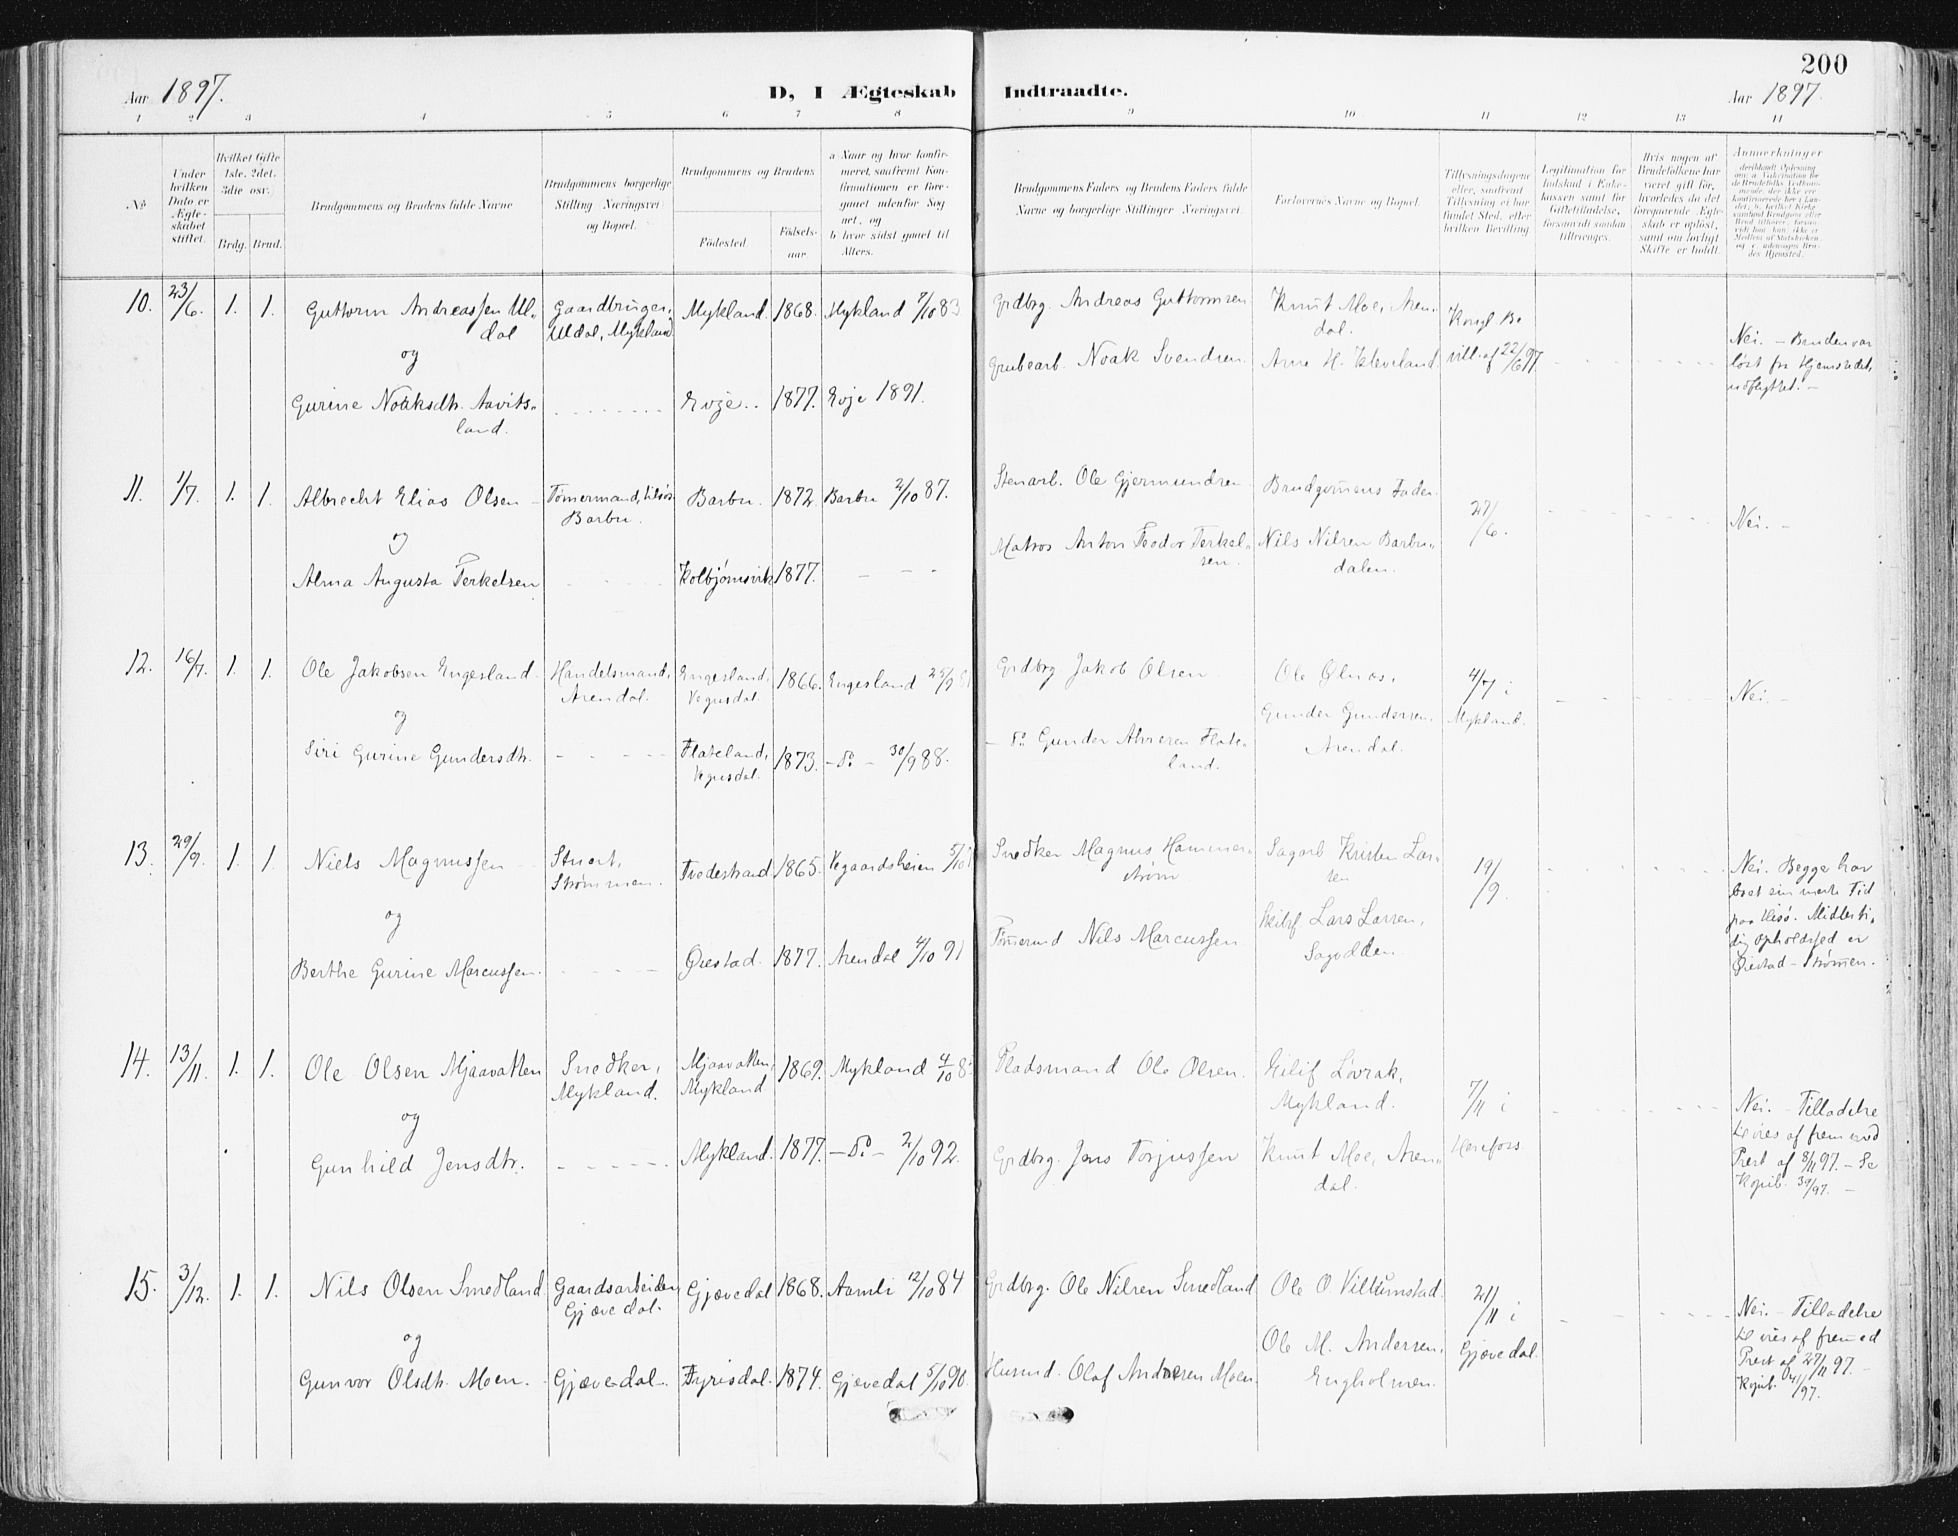 200
Aar 1897.
D, I Ægteskab Indtraadte.
Aar 1897.
1 2 3 4 5 6 7 8 9 10 11 12 13 14
No
Under hvilken Dato er Ægteskabet stiftet.
Hvilket Gifte 1ste, 2det, 3die osv.
Brdg. Brud.
Brudgommens og Brudens fulde Navne
Brudgommens borgerlige Stilling (Næringsvei) og Bopæl.
Brudgommens og Brudens
Fødested.
Fødselsaar.
a Naar og hvor konfirmeret, saafremt Konfirmationen er foregaaet udenfor Sognet, og
b hvor sidst gaaet til Alters.
Brudgommens Faders og Brudens Faders fulde Navne og borgerlige Stillinger (Næringsvei).
Forlovernes Navne og Bopæl.
Tillysningsdagene eller, saafremt Tillysning ei har fundet Sted, efter hvilken Bevilling.
Legitimation for Indskud i Enkekassen samt for Giftetilladelse, forsaavidt saadan tiltrænges.
Hvis nogen af Brudefolkene har været gift før, hvorledes da det foregaaende Ægteskab er opløst, samt om lovligt Skifte er holdt.
Anmerkninger
10. 23/6. 1. 1. Guttorm Andreassen Ul-
dal
Gaardbruger, Uldal, Mykland
Mykland. 1868. Mykland 7/10 83
Grdbrg. Andreas Guttormsen
Knut Moe, Aren-
dal.
Kongl Be
vill. af 22/6 97.
og
Gurine Noaksdtr. Aavits-
land.
Evje.. 1877. Evje 1891.
Grubearb. Noak Svendsen
Arne H. Kleveland
Nei. - Bruden var
løst fra Hjemstedet,
udflyttet. -
11. 1/7. 1. 1. Albrecht Elias Olsen
Tømermand,
Barbu.
Barbu. 1872. Barbu 2/10 87.
Stenarb. Ole Gjermundsen
Brudgomens Fader
27/6.
Nei. -
og
Alma Augusta Terkelsen
Kolbjørnsvik 1877.
Matros Anton Teodor Terkel-
sen.
Nils Nilsen Barbu-
dalen.
12. 16/7. 1. 1. Ole Jakobsen Engesland.
Handelsmand,
Arendal.
Engesland,
Vegusdal.
1866. Engesland 25/9
Grdbrg Jakob Olsen
Ole
4/7 i
Mykland.
Nei. -
og
Siri Gurine Gundersdtr.
Flateland,
Vegusdal.
1873. - do - 30/9 88.
- do Gunder Alvsen Flate-
land.
Gunder Gundersen,
Arendal.
13. 29/9. 1. 1. Niels Magnussen
Stuert,
Strømmen.
Tvedestrand 1865. Vegaardsheien 5/10
Snedker Magnus Hammer-
strøm
Sagarb Kristen Lar-
sen
19/9.
og
Berthe Gurine Marcussen.
Øiestad. 1877. Arendal 4/10 91
Tømermd Nils Marcussen
Lars Larsen,
Sagodden.
Nei. Begge har
Tid
paa Hisø. Midlerti-
dig Opholdssted er
Øiestad - Strømen.
14. 13/11. 1. 1. Ole Olsen Mjaavatten
Snedker,
Mykland.
Mjaavatten,
Mykland
1869. Mykland 4/10 8
Pladsmand Ole Olsen.
Eilif Løvrak,
Mykland.
7/11 i
Herefoss
og
Gunhild Jensdtr.
Mykland. 1877. - do - 2/10 92.
Grdbrg. Jens Torjussen
Knut Moe, Aren-
dal.
Nei. - Tilladelse
t vies af fremmed
Prest af 8/11 97. - Se
Kopib. 39/97. -
15. 3/12. 1. 1. Nils Olsen Smedland
Gaardsarbeider,
Gjøvedal.
Gjøvedal 1868. Aamli 12/10 84
Grdbrg. Ole Nilsen Smedland
Ole O. Viltumstad.
21/11 i
Gjøvedal.
og
Gunvor Olsdtr. Moen.
Gjøvedal. Fyrisdal. 1874. Gjøvedal 5/10 90.
Husmd. Olaf Andersen Moen.
Ole M. Andersen,
Engholmen.
Nei. - Tilladelse
t vies af fremed
Prest af 27/11 97. -
Kopib. 41/97.